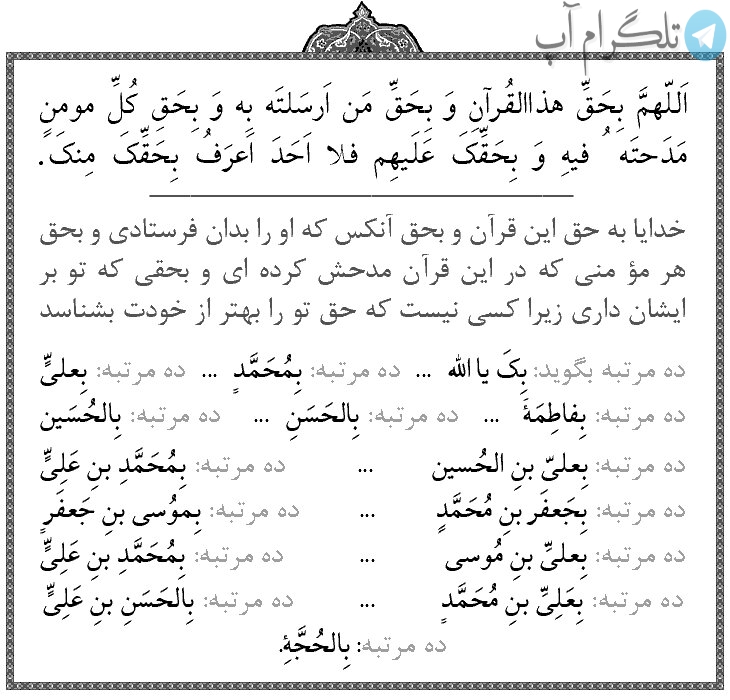 تلگرام آپ
اَللّهمَّ بِحَقِّ هذاالقُرآنِ وَ بِحَقِّ مَن اَرسَلتَه بِه وَ بِحَقِ کُلِّ مومنٍ
مَدَحتَه ُ فیهِ وَ بِحَقِّکَ عَلَیهِم فلا اَحَدَ اَعرَفُ بِحَقِّکَ مِنکَ.
خدایا به حق این قرآن و بحق آنکس که او را بدان فرستادی و بحق
هر مؤ منی که در این قرآن مدحش کرده ای و بحقی که تو بر
ایشان داری زیرا کسی نیست که حق تو را بهتر از خودت بشناسد
ده مرتبه بگوید: بِکَ یا الله ... ده مرتبه: بِمُحَمَّدٍ ... ده مرتبه: بِعلیٍّ
ده مرتبه: بِفاطِمَةَ ... ده مرتبه: بِالحَسَنِ ... ده مرتبه: بِالحُسَین
ده مرتبه: بِعلیّ بنِ الحُسین ... ده مرتبه: بِمُحَمَّدِ بنِ عَلِیٍّ
ده مرتبه: بِجَعفَر بنِ مُحَمَّدٍ ... ده مرتبه: بِموُسی بنِ جَعفَرٍ
ده مرتبه: بِعلیِّ بنِ مُوسی ... ده مرتبه: بِمُحَمَّدِ بنِ عَلِیٍّ
ده مرتبه: بِعَلِیِّ بنِ مُحَمَّدٍ ... ده مرتبه: بِالحَسَنِ بنِ عَلِیٍّ
ده مرتبه: بِالحُجَّةِ.